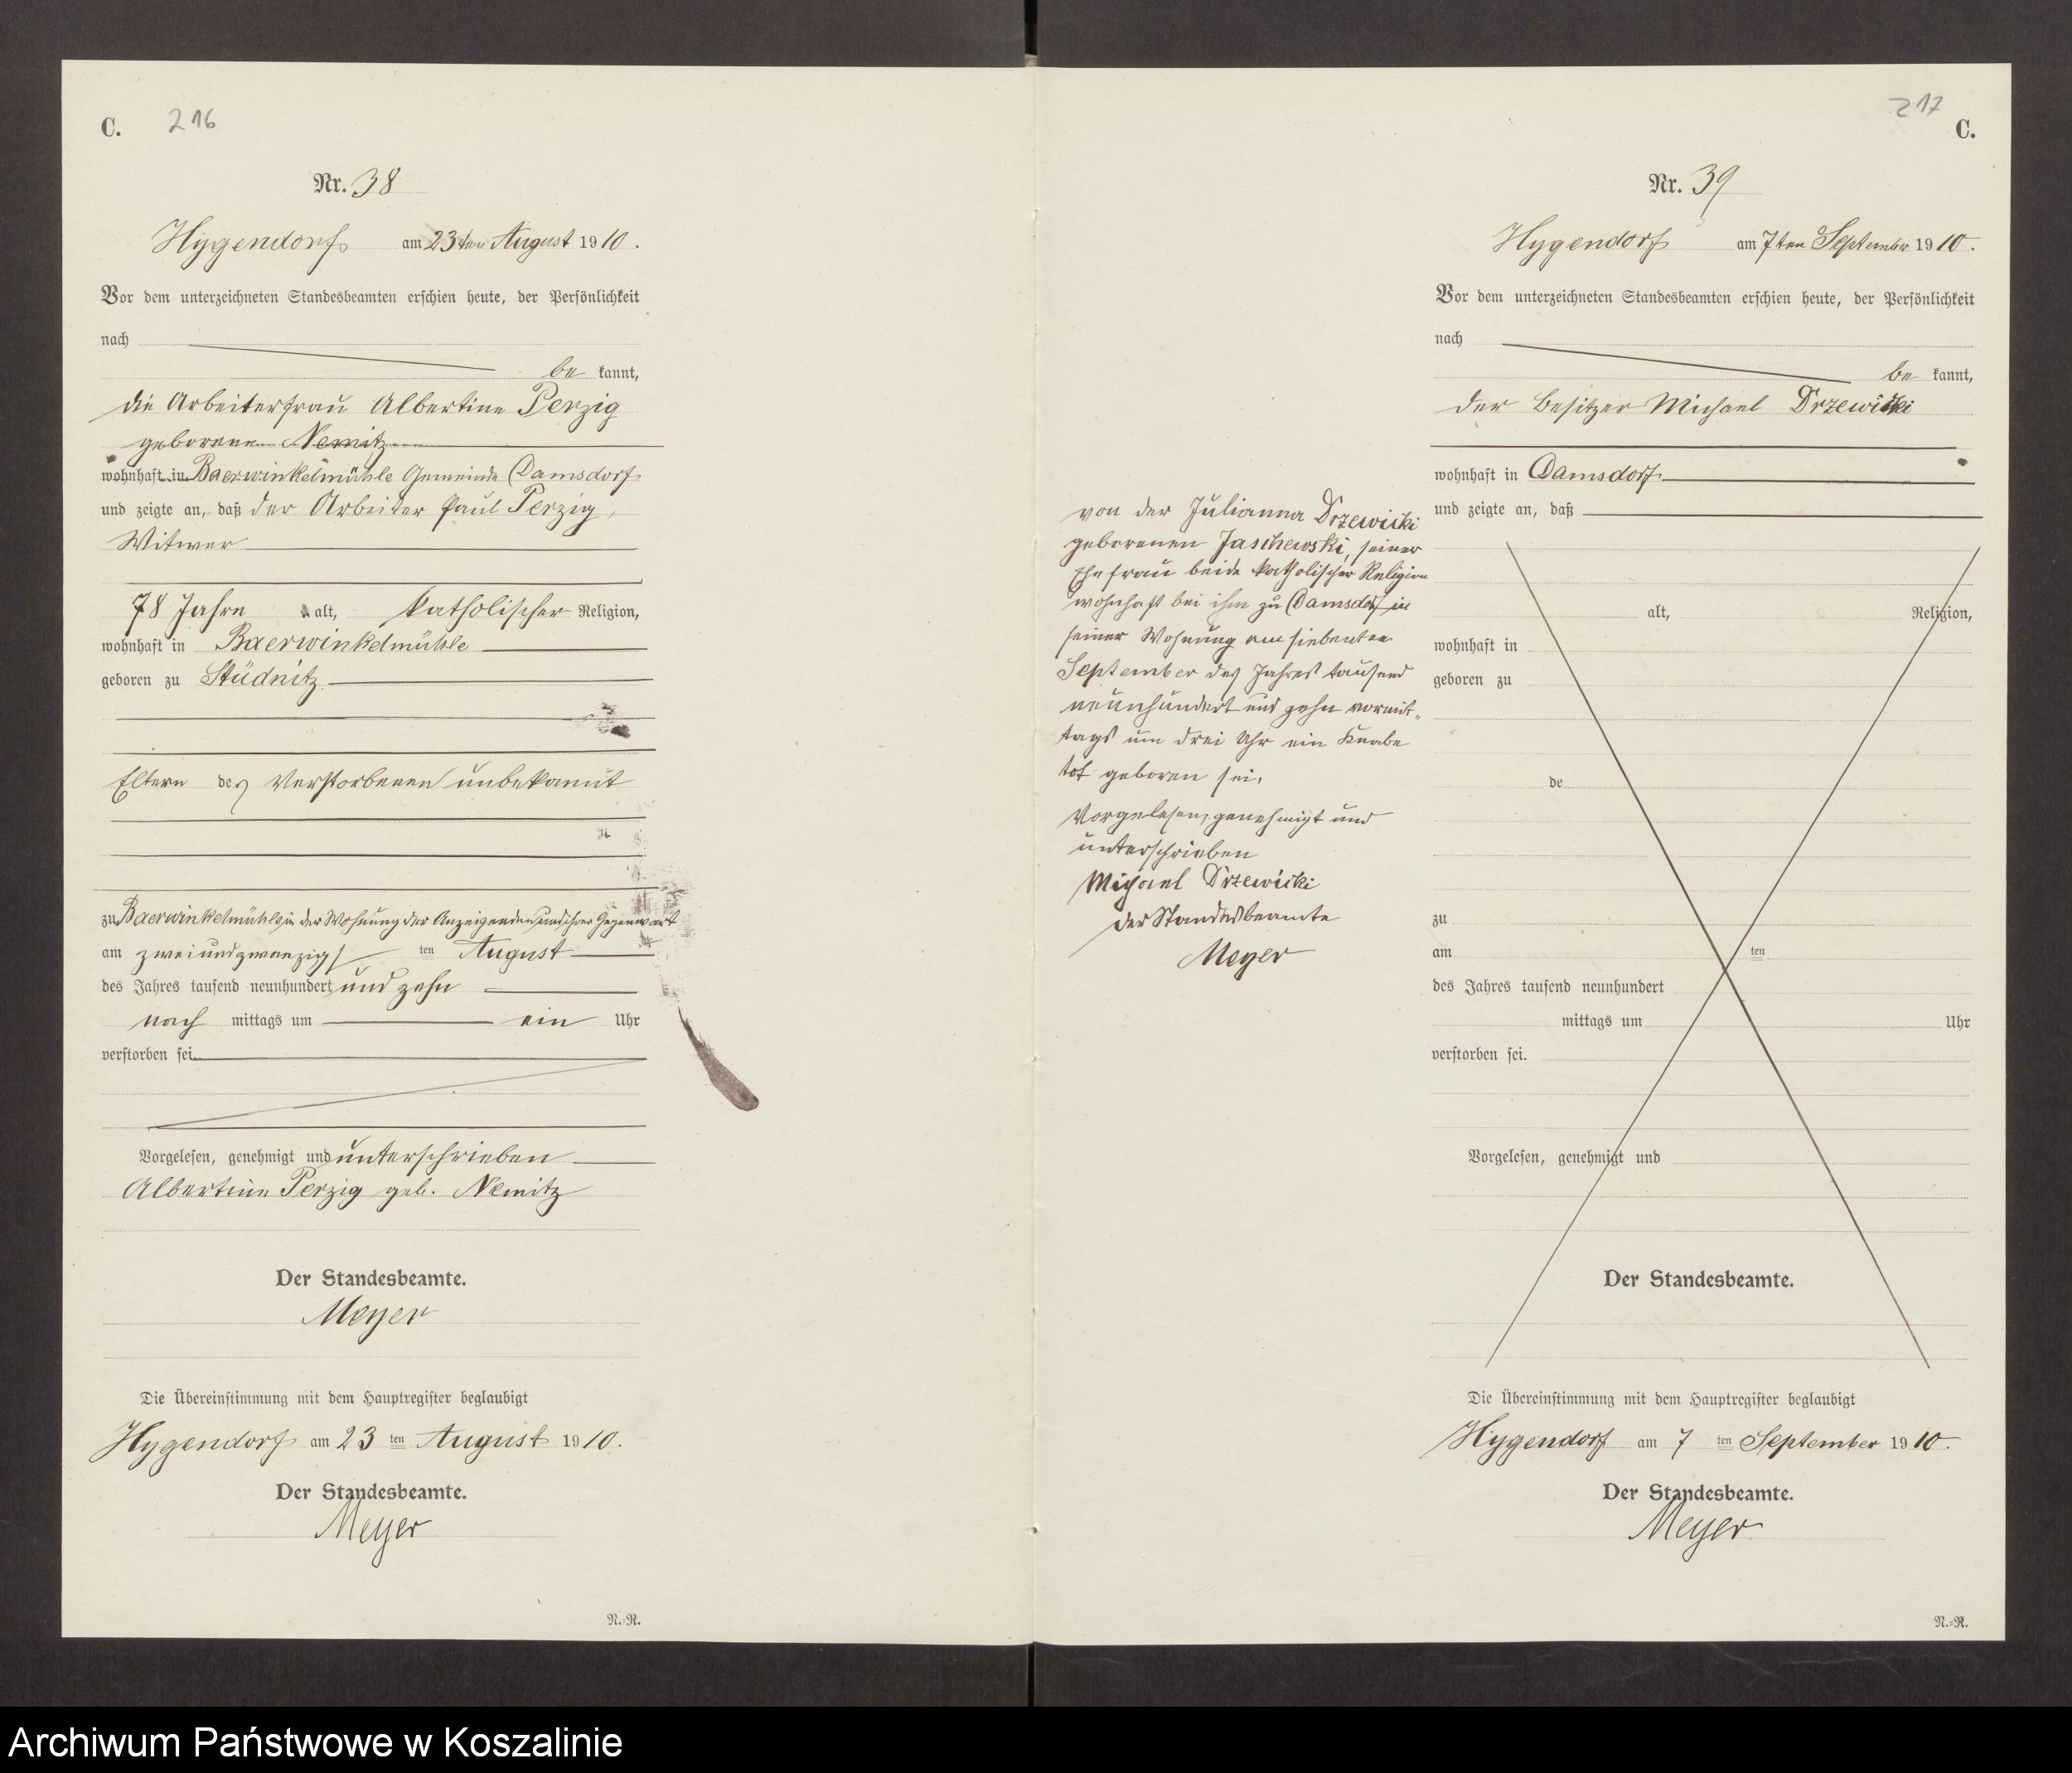 C. 216
Nr. 38
Hygendorf am 23ten August 1910.
Vor dem unterzeichneten Standesbeamten erschien heute, der Persönlichkeit
nach
be kannt,
die Arbeiterfrau Albertine Perzig
geborene Nemitz
wohnhaft in Baerwinkelmühle Gemeinde Damsdorf
und zeigte an, daß der Arbeiter Paul Perzig,
Witwer
78 Jahre alt, katholischer Religion,
wohnhaft in Baerwinkelmühle
geboren zu Stüdnitz
Eltern des Verstorbenen unbekannt
zu Baerwinkelmühle in der Wohnung der Anzeigenden und ihrer Gegenwart
am zweiundzwanzigs ten August
des Jahres tausend neunhundert und zehn
nach mittags um ein Uhr
verstorben sei.
Vorgelesen, genehmigt und unterschrieben
Albertine Perzig geb. Nemitz
Der Standesbeamte.
Meyer
Die Übereinstimmung mit dem Hauptregister beglaubigt
Hygendorf am 23 ten August 1910.
Der Standesbeamte.
Meyer
N.-R.
217
C.
Nr. 39
Hygendorf am 7ten September 1910.
Vor dem unterzeichneten Standesbeamten erschien heute, der Persönlichkeit
nach
be kannt,
der Besitzer Michael Drzewicki
wohnhaft in Damsdorf
und zeigte an, daß
von der Julianna Drzewicki
geborenen Jaschewski, seiner
Ehefrau beide katholischer Religion
wohnhaft bei ihm zu Damsdorf in
seiner Wohnung am siebenten
September des Jahres tausend
neunhundert und zehn vormit-
tags um drei Uhr ein Knabe
tot geboren sei.
Vorgelesen, genehmigt und
unterschrieben
Michael Drzewicki
der Standesbeamte
Meyer
alt, Religion,
wohnhaft in
geboren zu
de
zu
am ten
des Jahres tausend neunhundert
mittags um Uhr
verstorben sei.
Vorgelesen, genehmigt und
Der Standesbeamte.
Die Übereinstimmung mit dem Hauptregister beglaubigt
Hygendorf am 7 ten September 1910.
Der Standesbeamte.
Meyer
N.-R.
Archiwum Państwowe w Koszalinie